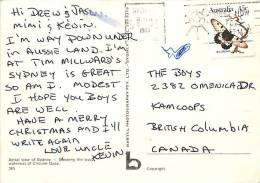 Hi Drew & Jason.
Mimi & Kevin.
I'm way down under
in Aussie land. I'm
at Tim Millward's
Sydney is great
so am I. Modest
I hope you boys
are well.
Have a merry
Christmas and I'll
write again
Love Uncle
Kevin
Aerial view of Sydney
waters of Circular Quay.
The Boys
2382 Omenica Dr
Kamloops
British Columbia
Canada
Australia
Copyright